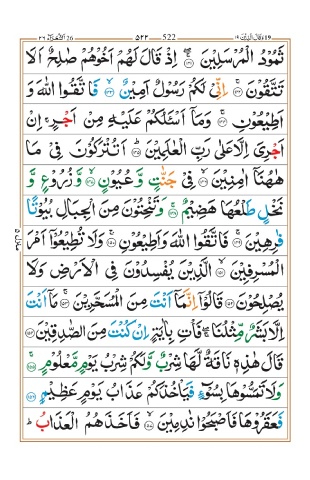 وقال الذین ١٩ ٥٢٢ 522 الشعرآء 26 ٢٦
ثَمُوۡدُ الۡمُرۡسَلِيۡنَ ۖۚ‏ ﴿۱۴۱﴾ اِذۡ قَالَ لَهُمۡ اَخُوۡهُمۡ صٰلِحٌ اَلَا
تَتَّقُوۡنَ‌ۚ‏ ﴿۱۴۲﴾ اِنِّىۡ لَـكُمۡ رَسُوۡلٌ اَمِيۡنٌۙ‏ ﴿۱۴۳﴾ فَاتَّقُوا اللّٰهَ وَ
اَطِيۡعُوۡنِ‌ۚ‏ ﴿۱۴۴﴾ وَمَاۤ اَسۡئَلُكُمۡ عَلَيۡهِ مِنۡ اَجۡرٍ‌ۚ اِنۡ
اَجۡرِىَ اِلَّا عَلٰى رَبِّ الۡعٰلَمِيۡنَؕ‏ ﴿۱۴۵﴾ اَتُتۡرَكُوۡنَ فِىۡ مَا
هٰهُنَاۤ اٰمِنِيۡنَۙ‏ ﴿۱۴۶﴾ فِىۡ جَنّٰتٍ وَّعُيُوۡنٍۙ‏ ﴿۱۴۷﴾ وَّزُرُوۡعٍ وَّ
نَخۡلٍ طَلۡعُهَا هَضِيۡمٌ‌ۚ‏ ﴿۱۴۸﴾ وَتَنۡحِتُوۡنَ مِنَ الۡجِبَالِ بُيُوۡتًا
فٰرِهِيۡنَ‌ۚ‏ ﴿۱۴۹﴾ فَاتَّقُوا اللّٰهَ وَاَطِيۡعُوۡنِ‌ۚ‏ ﴿۱۵۰﴾ وَلَا تُطِيۡعُوۡۤا اَمۡرَ
الۡمُسۡرِفِيۡنَۙ‏ ﴿۱۵۱﴾ الَّذِيۡنَ يُفۡسِدُوۡنَ فِى الۡاَرۡضِ وَ لَا
يُصۡلِحُوۡنَ‏ ﴿۱۵۲﴾ قَالُوۡۤا اِنَّمَاۤ اَنۡتَ مِنَ الۡمُسَحَّرِيۡنَ‌ۚ‏ ﴿۱۵۳﴾ مَاۤ اَنۡتَ
اِلَّا بَشَرٌ مِّثۡلُنَا ۖۚ فَاۡتِ بِاٰيَةٍ اِنۡ كُنۡتَ مِنَ الصّٰدِقِيۡنَ‏ ﴿۱۵۴﴾
قَالَ هٰذِهٖ نَاقَةٌ لَّهَا شِرۡبٌ وَّلَـكُمۡ شِرۡبُ يَوۡمٍ مَّعۡلُوۡمٍ‌ۚ‏ ﴿۱۵۵﴾
وَلَا تَمَسُّوۡهَا بِسُوۡٓءٍ فَيَاۡخُذَكُمۡ عَذَابُ يَوۡمٍ عَظِيۡمٍ‏ ﴿۱۵۶﴾
فَعَقَرُوۡهَا فَاَصۡبَحُوۡا نٰدِمِيۡنَۙ‏ ﴿۱۵۷﴾ فَاَخَذَهُمُ الۡعَذَابُ‌ؕ